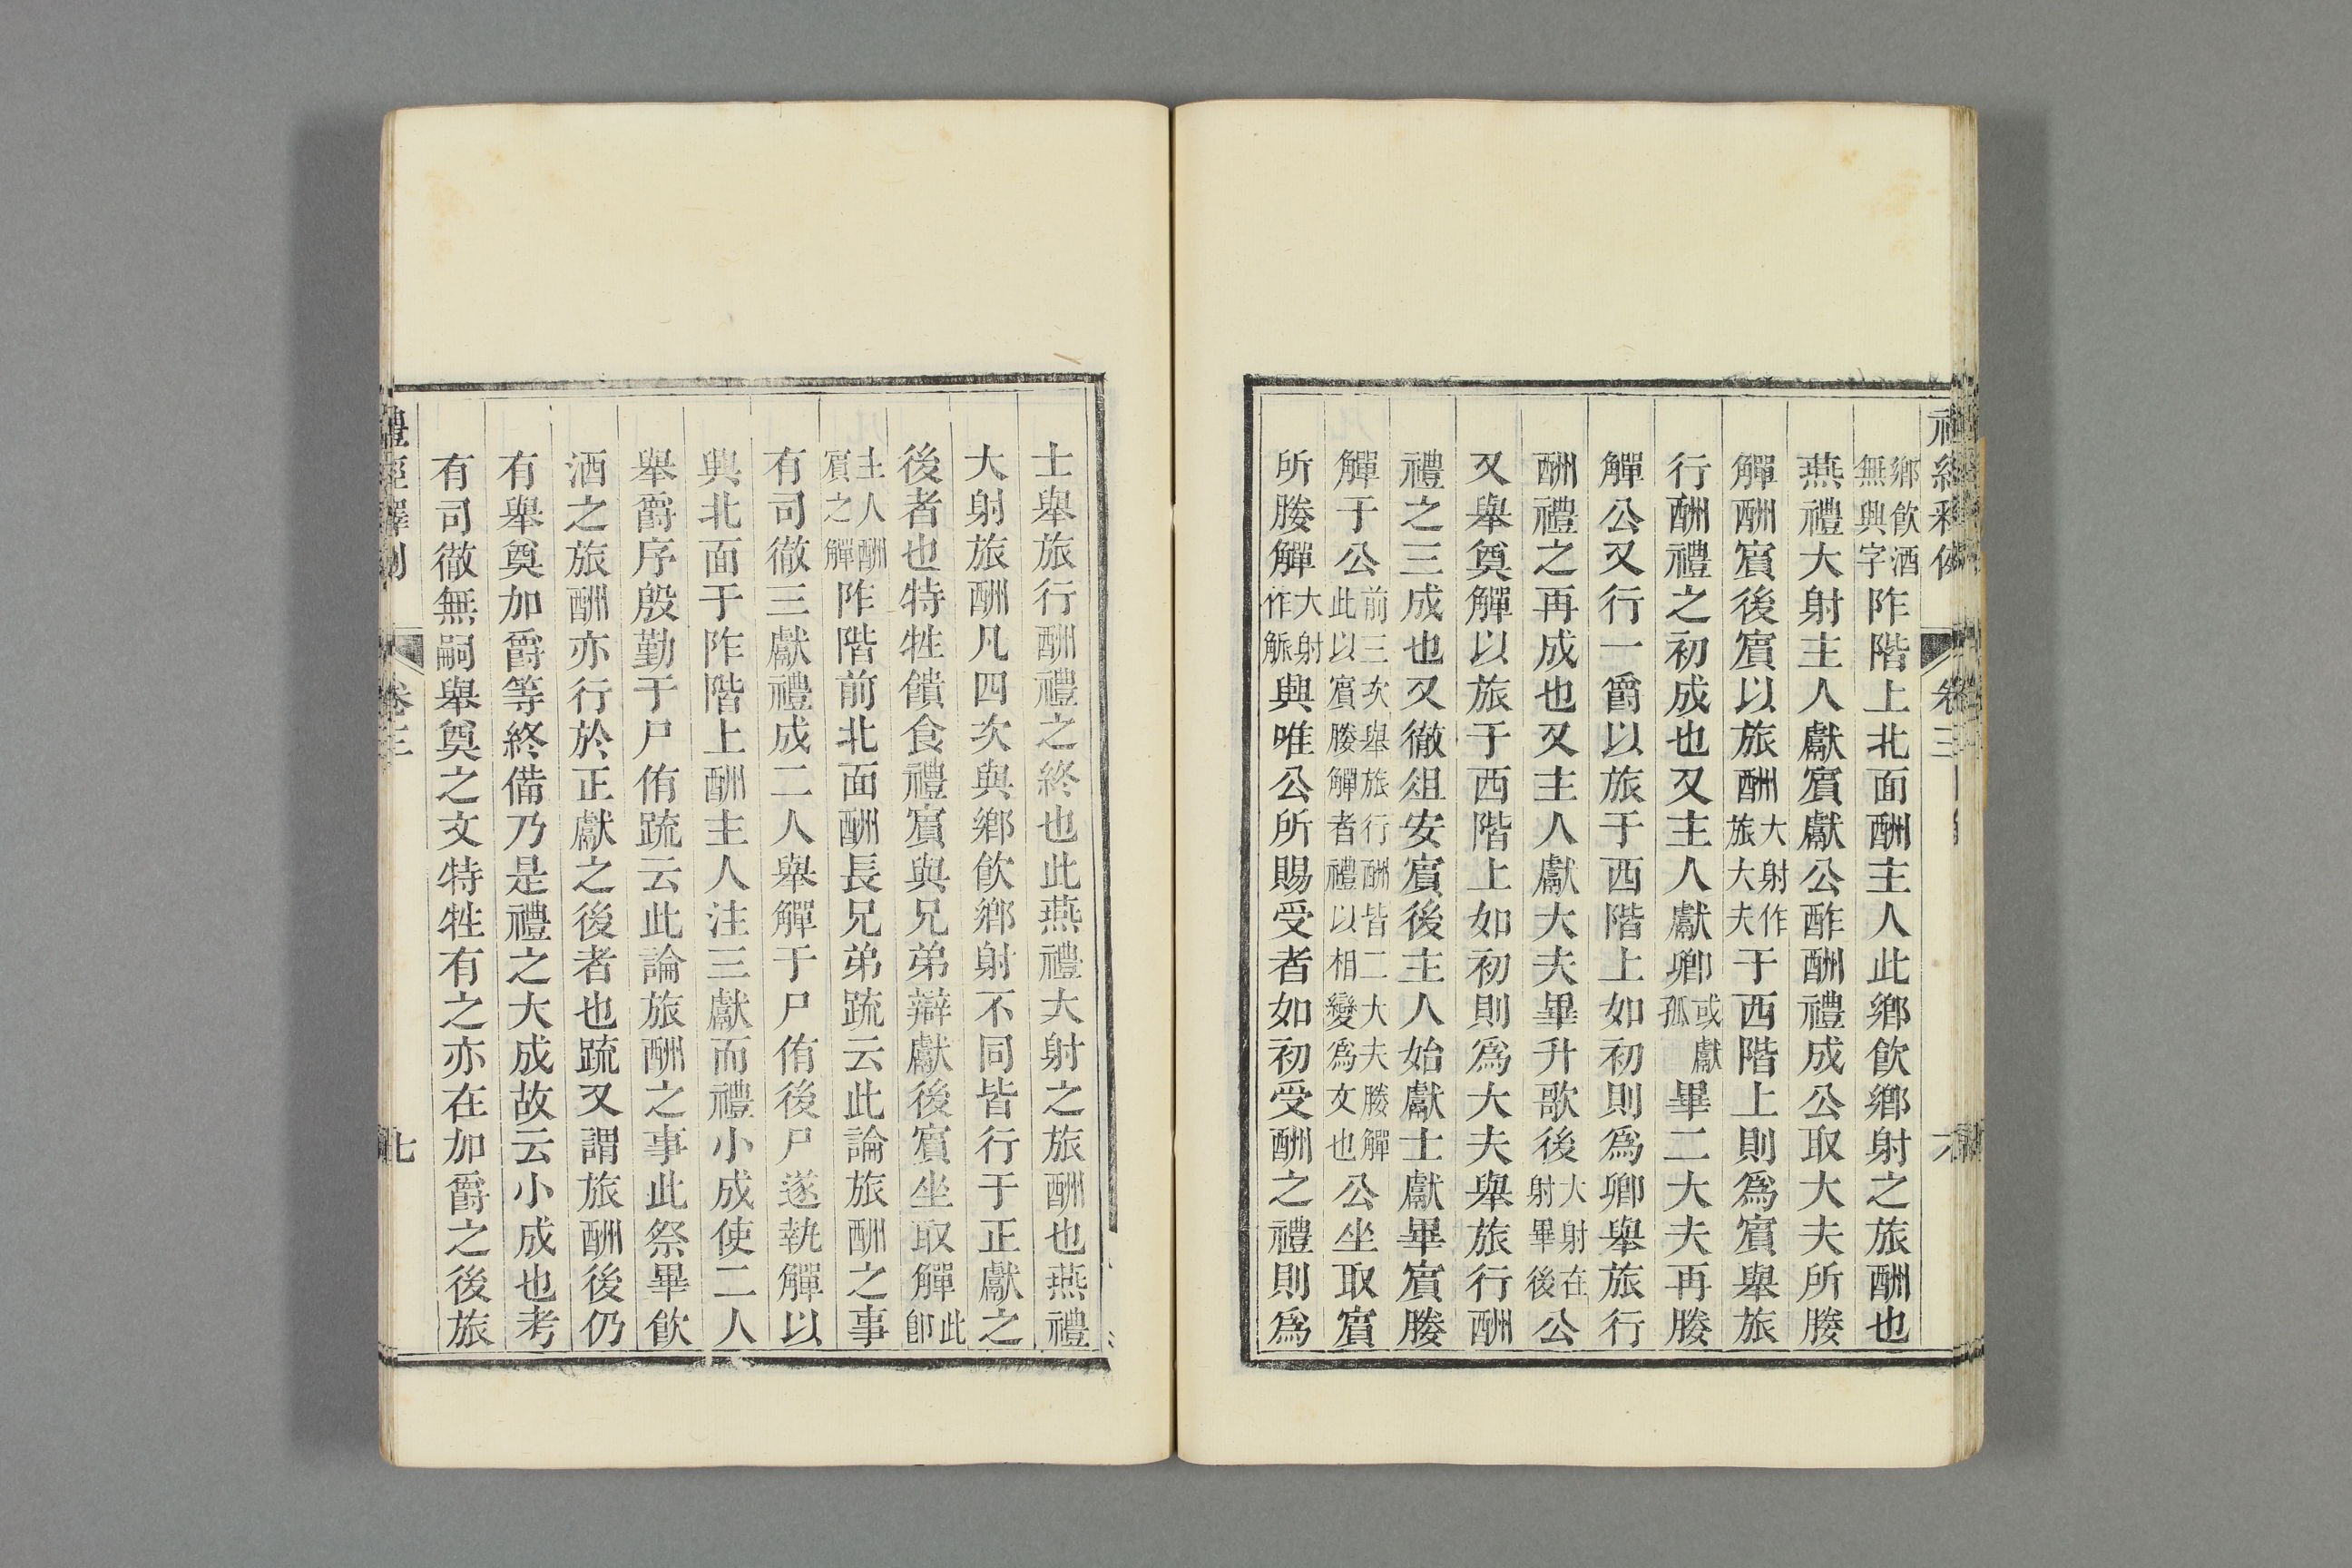 鄉飲酒無興字阼階上北面酬主人此鄉飮鄉射之旅酬也
燕禮大射主人獻賓獻公酢酬禮成公取大夫所媵
觶酬賓後賓以旅酬大射作旅大夫于西階上則爲賓舉旅
行酬禮之初成也又主人獻卿或獻孤畢二大夫再媵
觶公又行一爵以旅于西階上如初則爲卿舉旅行
酬禮之再成也又主人獻大夫畢升歌後大射在射畢後公
又舉奠觶以旅于西階上如初則爲大夫舉旅行酬
禮之三成也又徹俎安賓後主人始獻士獻畢賓媵
觶于公前三次舉旅行酬皆二大夫媵觶此以賓媵觶者禮以相變爲文也公坐取賓
所媵觶大射作觚興唯公所賜受者如初受酬之禮則爲
士舉旅行酬禮之終也此燕禮大射之旅酬也燕禮
大射旅酬凡四次與鄉飮鄉射不同皆行于正獻之
後者也特牲饋食禮賓與兄弟辯獻後賓坐取觶此卽
主人酬賓之觶阼階前北面酬長兄弟疏云此論旅酬之事
有司徹三獻禮成二人舉觶于尸侑後尸遂執觶以
興北面于阼階上酬主人注三獻而禮小成使二人
舉爵序殷勤于尸侑疏云此論旅酬之事此祭畢飮
酒之旅酬亦行於正獻之後者也疏又謂旅酬後仍
有舉奠加爵等終備乃是禮之大成故云小成也考
有司徹無嗣舉奠之文特牲有之亦在加爵之後旅
禮經釋例 卷三 七